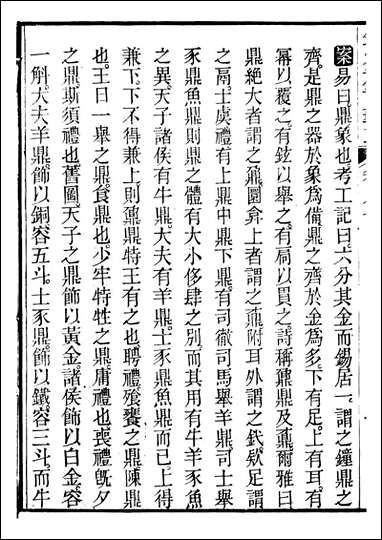 案易曰鼎象也考工記曰六分其金而錫居一謂之鐘鼎之
齊是鼎之器於象為備鼎之齊於金為多下有足上有耳有
冪以覆之有鉉以舉之有扃以貫之詩稱鼐鼎及鼒爾雅曰
鼎絕大者謂之鼐圜弇上者謂之鼒附耳外謂之釴欵足謂
之鬲士虞禮有上鼎中鼎下鼎有司徹司馬舉羊鼎司士舉
豕鼎魚鼎則鼎之體有大小侈弇之別而其用有牛羊豕魚
之異天子諸侯有牛鼎大夫有羊鼎士豕鼎魚鼎而已上得
兼下下不得兼上則鼐鼎特王有之也聘禮飱饔之鼎陳鼎
也王日一舉之鼎食鼎也少牢特牲之鼎庸禮也喪禮旣夕
之鼎斯須禮也舊圖天子之鼎飾以黃金諸侯飾以白金容
一斛大夫羊鼎飾以銅容五斗士豕鼎飾以鐵容三斗而牛